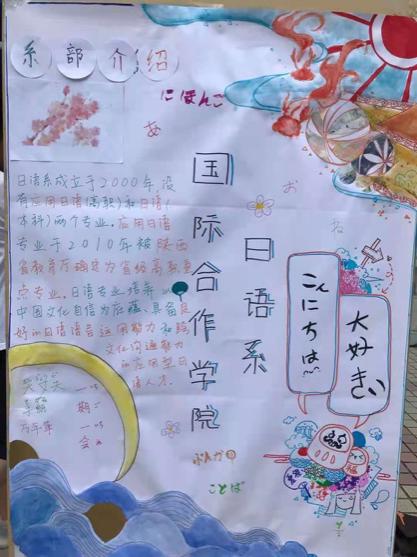 系部介绍
にほんご
あ
日语系成立于2000年,设
有应用日语(高职)和日语(
本科)两个专业,应用日语
专业于2010年被陕西
省教育厅确定为省级高职重
点专业。日语专业培养以
中国文化自信为底蕴、具备良
好的日语语言运用能力和跨
文化沟通能力
的应用型日
语人才。
国际合作学院
日语系
お
こんにちは~
大好き
一期一会
ぶんか
ことば